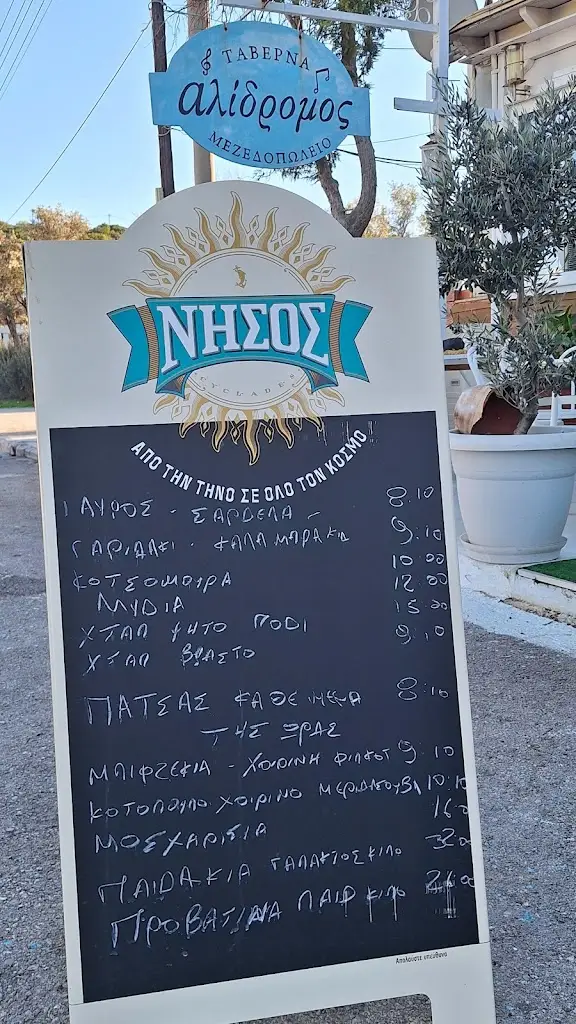 ΤΑΒΕΡΝΑ
αλίδρομος
ΜΕΖΕΔΟΠΩΛΕΙΟ
ΝΗΣΟΣ
CYCLADES
ΑΠΟ ΤΗΝ ΤΗΝΟ ΣΕ ΟΛΟ ΤΟΝ ΚΟΣΜΟ
ΓΑΥΡΟΣ - ΣΑΡΔΕΛΑ - 8.10
ΓΑΡΙΔΑΚΙ - ΚΑΛΑΜΑΡΑΚΙ 9.10
ΚΟΤΣΟΜΟΥΡΑ 10.00
ΜΥΔΙΑ 12.00
ΧΤΑΠ ΨΗΤΟ ΠΟΔΙ 15.00
ΧΤΑΠ ΒΡΑΣΤΟ 9.10
ΠΑΤΣΑΣ ΚΑΘΕ ΜΕΡΑ 8:10
ΤΗΣ ΩΡΑΣ
ΜΠΙΦΤΕΚΙΑ - ΧΟΙΡΙΝΗ 9.10
ΚΟΤΟΠΟΥΛΟ ΧΟΙΡΙΝΟ 10.10
ΜΟΣΧΑΡΙΣΙΑ
ΠΑΙΔΑΚΙΑ ΓΑΛΑΚΤΟΣ ΚΙΛΟ 32.00
ΠΡΟΒΑΤΙΝΑ ΠΑΙΔ ΚΙΛΟ
Απολαύστε υπεύθυνα